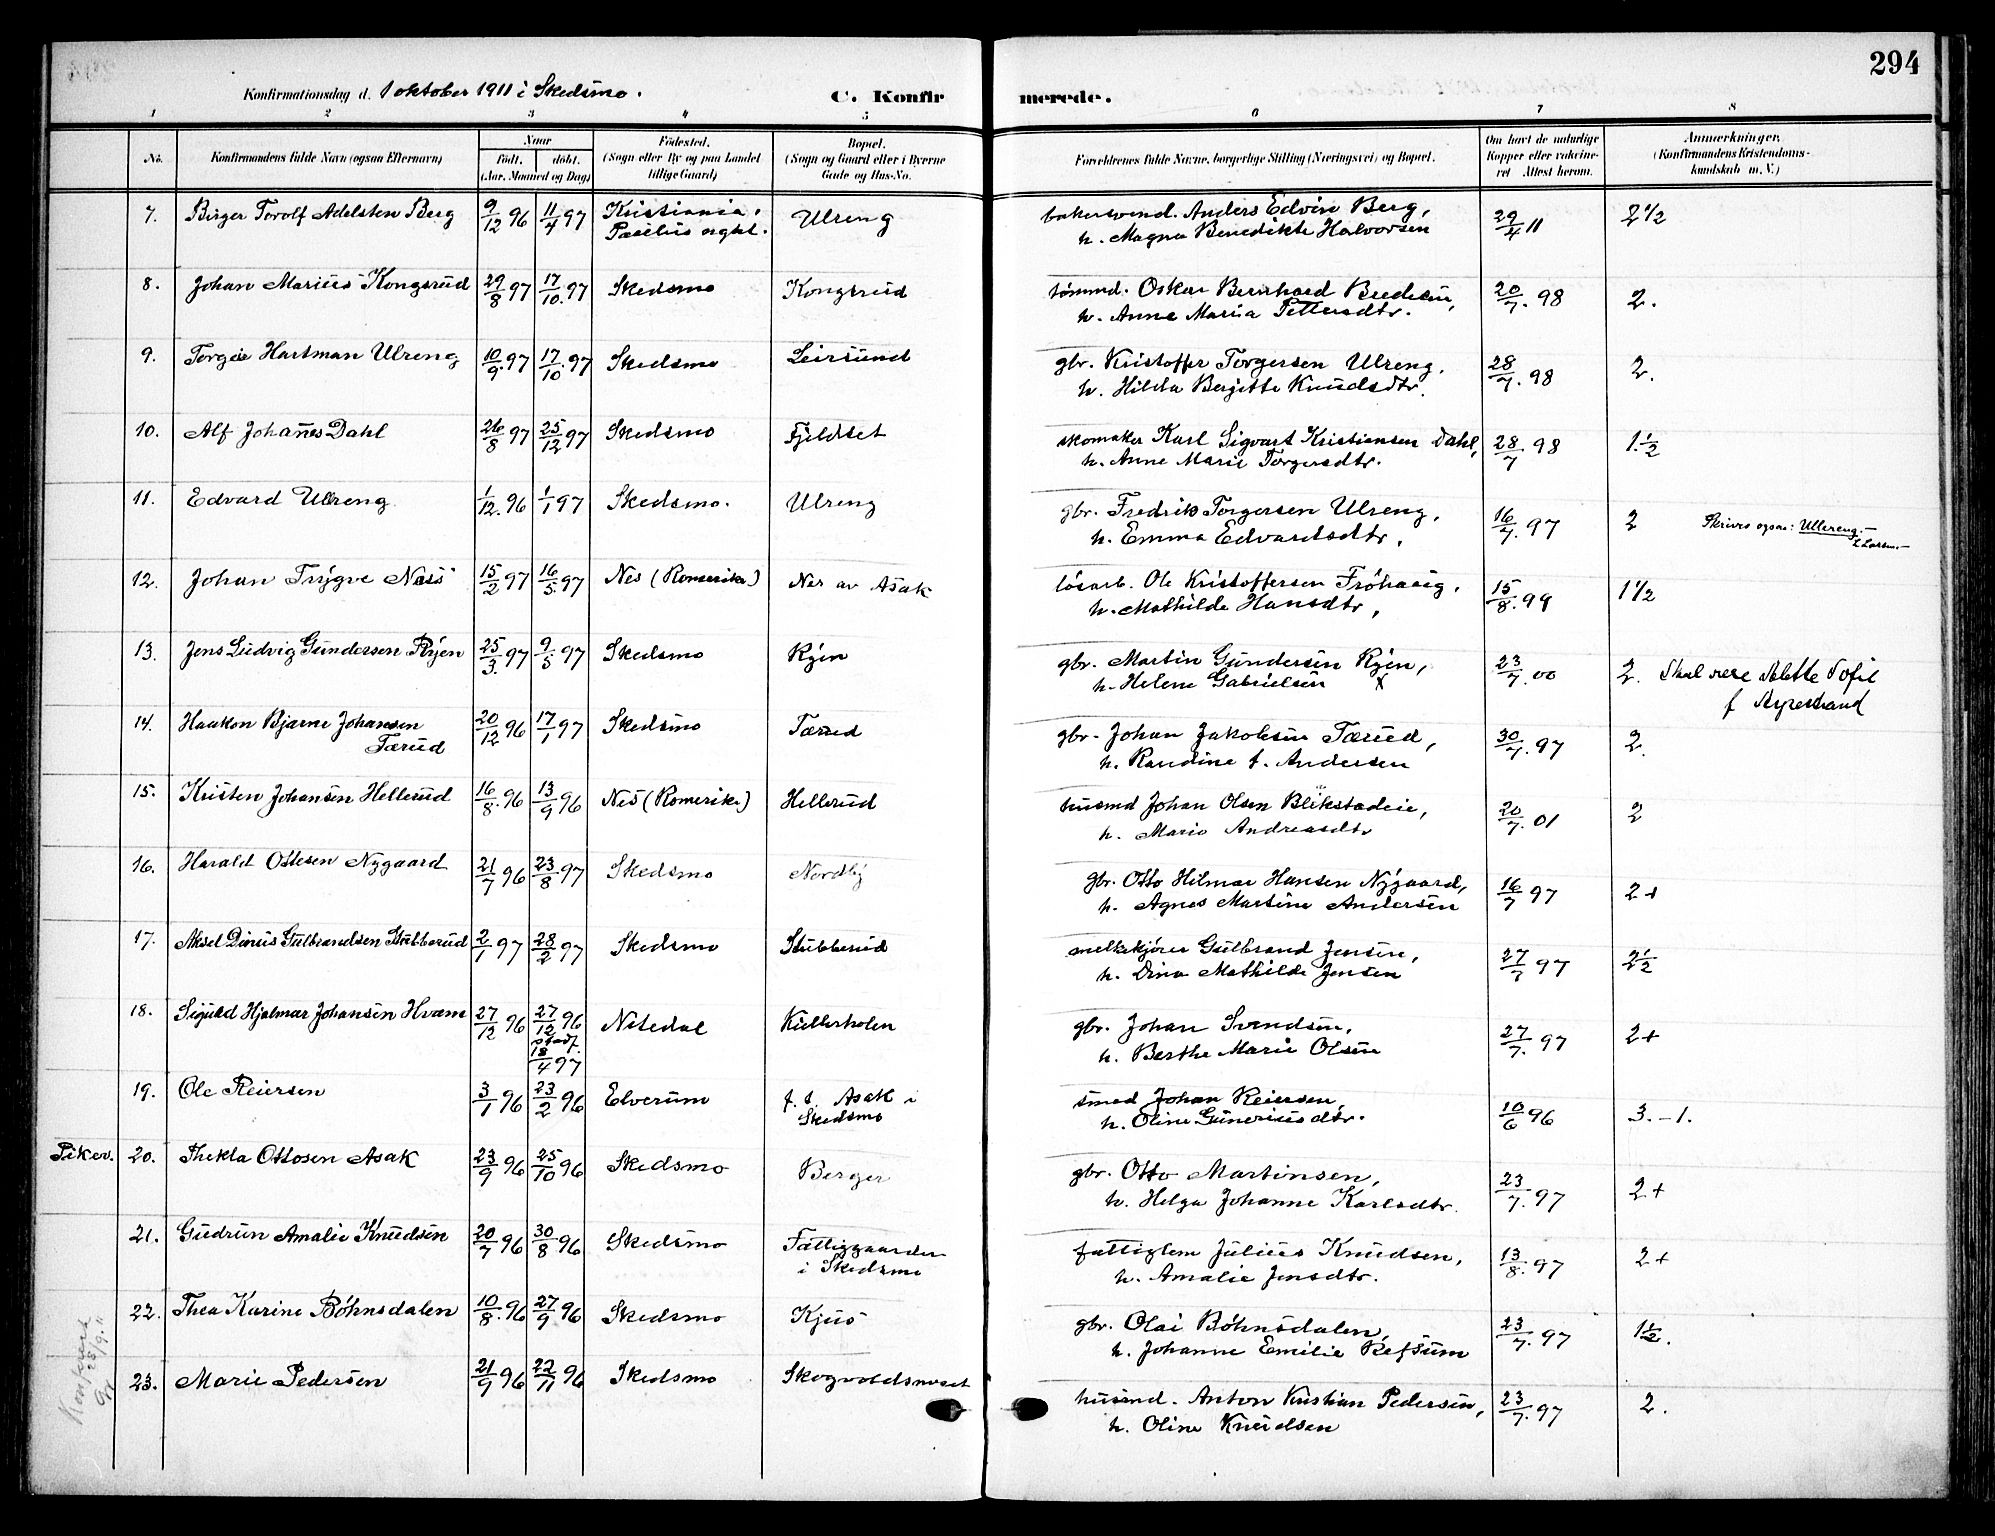 294
Konfirmationsdag d. 1 oktober 1911 i Skedsmo.
C. Konfirmerede.
1 2 3 4 5 6 7 8
No.
Konfirmandens fulde Navn (ogsaa Efternavn)
Naar
født. døbt.
(Aar, Maaned og Dag)
Fødested.
(Sogn eller By og paa Landet
tillige Gaard)
Bopæl.
(Sogn og Gaard eller i Byerne
Gade og Hus-No.
Forældrenes fulde Navne, borgerlige Stilling (Næringsvei) og Bopæl.
Om havt de naturlige
Kopper eller vakcine-
ret Attest herom.
Anmerkninger,
(Konfirmandens Kristendoms-
kundskab m. V.)
7. Birger Torolf Adelsten Berg 9/12 96 11/4 97 Kristiania, Ulreng bakersvend. Anders Edvin Berg, 29/4 11 2 1/2
Paulus mght. h. Magna Benedikte Halvorsen
8. Johan Marius Kongsrud 29/8 97 17/10. 97 Skedsmo Kongsrud tömmd. Oskar Bernhard Bredesen, 20/7. 98 2.
h. Anne Maria Pettersdtr.
9. Torgeir Hartman Ulreng 10/9. 97 17/10 97 Skedsmo Leirsund gbr. Kristoffer Torgersen Ulreng, 28/7. 98 2.
h. Hilda Bergitte Knudsdtr.
10. Alf Johan̄es Dahl 26/8 97 25/12 97 Skedsmo Fjeldset skomaker Karl Sigvart Kristiansen Dahl, 28/7 98 1.1/2
h. Anne Marie Torgersdtr.
11. Edvard Ulreng 1/12. 96 1/1 97 Skedsmo. Ulreng gbr. Fredrik Torgersen Ulreng, 16/7. 97 2 Skrives ogsaa: Ullereng.
h. Emma Edvardsdtr.
12. Johan Trygve Næss 15/2 97 16/5. 97 Nes (Romerike) Nes av Asak lösarb. Ole Kristoffersen Fröhaug, 15/8. 99 1 1/2
h. Mathilde Hansdtr,
13. Jens Ludvig Gundersen Ryen 25/3. 97 9/5 97 Skedsmo Ryen gbr. Martin Gundersen Ryen, 23/7. 00 2. Skal være Valette Sofie
h. Helene Gabrielsen x f Ayrestrand
14. Haakon Bjarne Johansen 20/12 96 17/1 97 Skedsmo Tærud gbr. Johan Jakobsen Tærud, 30/7. 97 2.
Tærud h. Randine f. Andersen
15. Kristen Johansen Hellerud 16/8. 96 13/9 96 Nes (Romerike) Hellerud husmd Johan Olsen Blikstadeie, 20/7. 01 2
h. Marie Andreasdtr
16. Harald Ottesen Nygaard 21/7 96 23/8 97 Skedsmo Nordby gbr. Otto Hilmar Hansen Nygaard, 16/7 97 2+
h. Agnes Martine Andersen
17. Aksel Dinus Gulbrandsen Stubberud 2/1 97 28/2 97 Skedsmo Stubberud melkekjører Gulbrand Jensen, 27/7 97 2 1/2
h. Dina Mathilde Jensen
18. Sigurd Hjalmar Johansen Hvam 27/12 96 27/12 96 Nitedal Kullerholen gbr. Johan Svendsen, 27/7. 97 2+
stadf. h. Berthe Marie Olsen
18/4 97
19. Ole Reiersen 3/1 96 23/2 96 Elverum f. t. Asak i smed Johan Reiersen, 10/6 96 3.-1.
Skedsmo h. Oline Guneriusdtr.
Piker. 20. Thekla Ottosen Asak 23/9 96 25/10 96 Skedsmo Berger gbr. Otto Martinsen, 23/7. 97 2+
h. Helga Johanne Karlsdtr.
21. Gudrun Amalie Knudsen 20/7 96 30/8 96 Skedsmo Fattiggaarden fattiglem Julius Knudsen, 13/8. 97 2+
i Skedsmo h. Amalie Jensdtr.
22. Thea Karine Böhnsdalen 10/8. 96 27/9 96 Skedsmo Kjus gbr. Olai Böhnsdalen, 23/7. 97 1 1/2.
h. Johanne Emilie Refsum
23. Marie Pedersen 21/9 96 22/11 96 Skedsmo Skogvoldsmoset husmd. Anton Kristian Pedersen, 23/7. 97 2.
h. Oline Knudsen